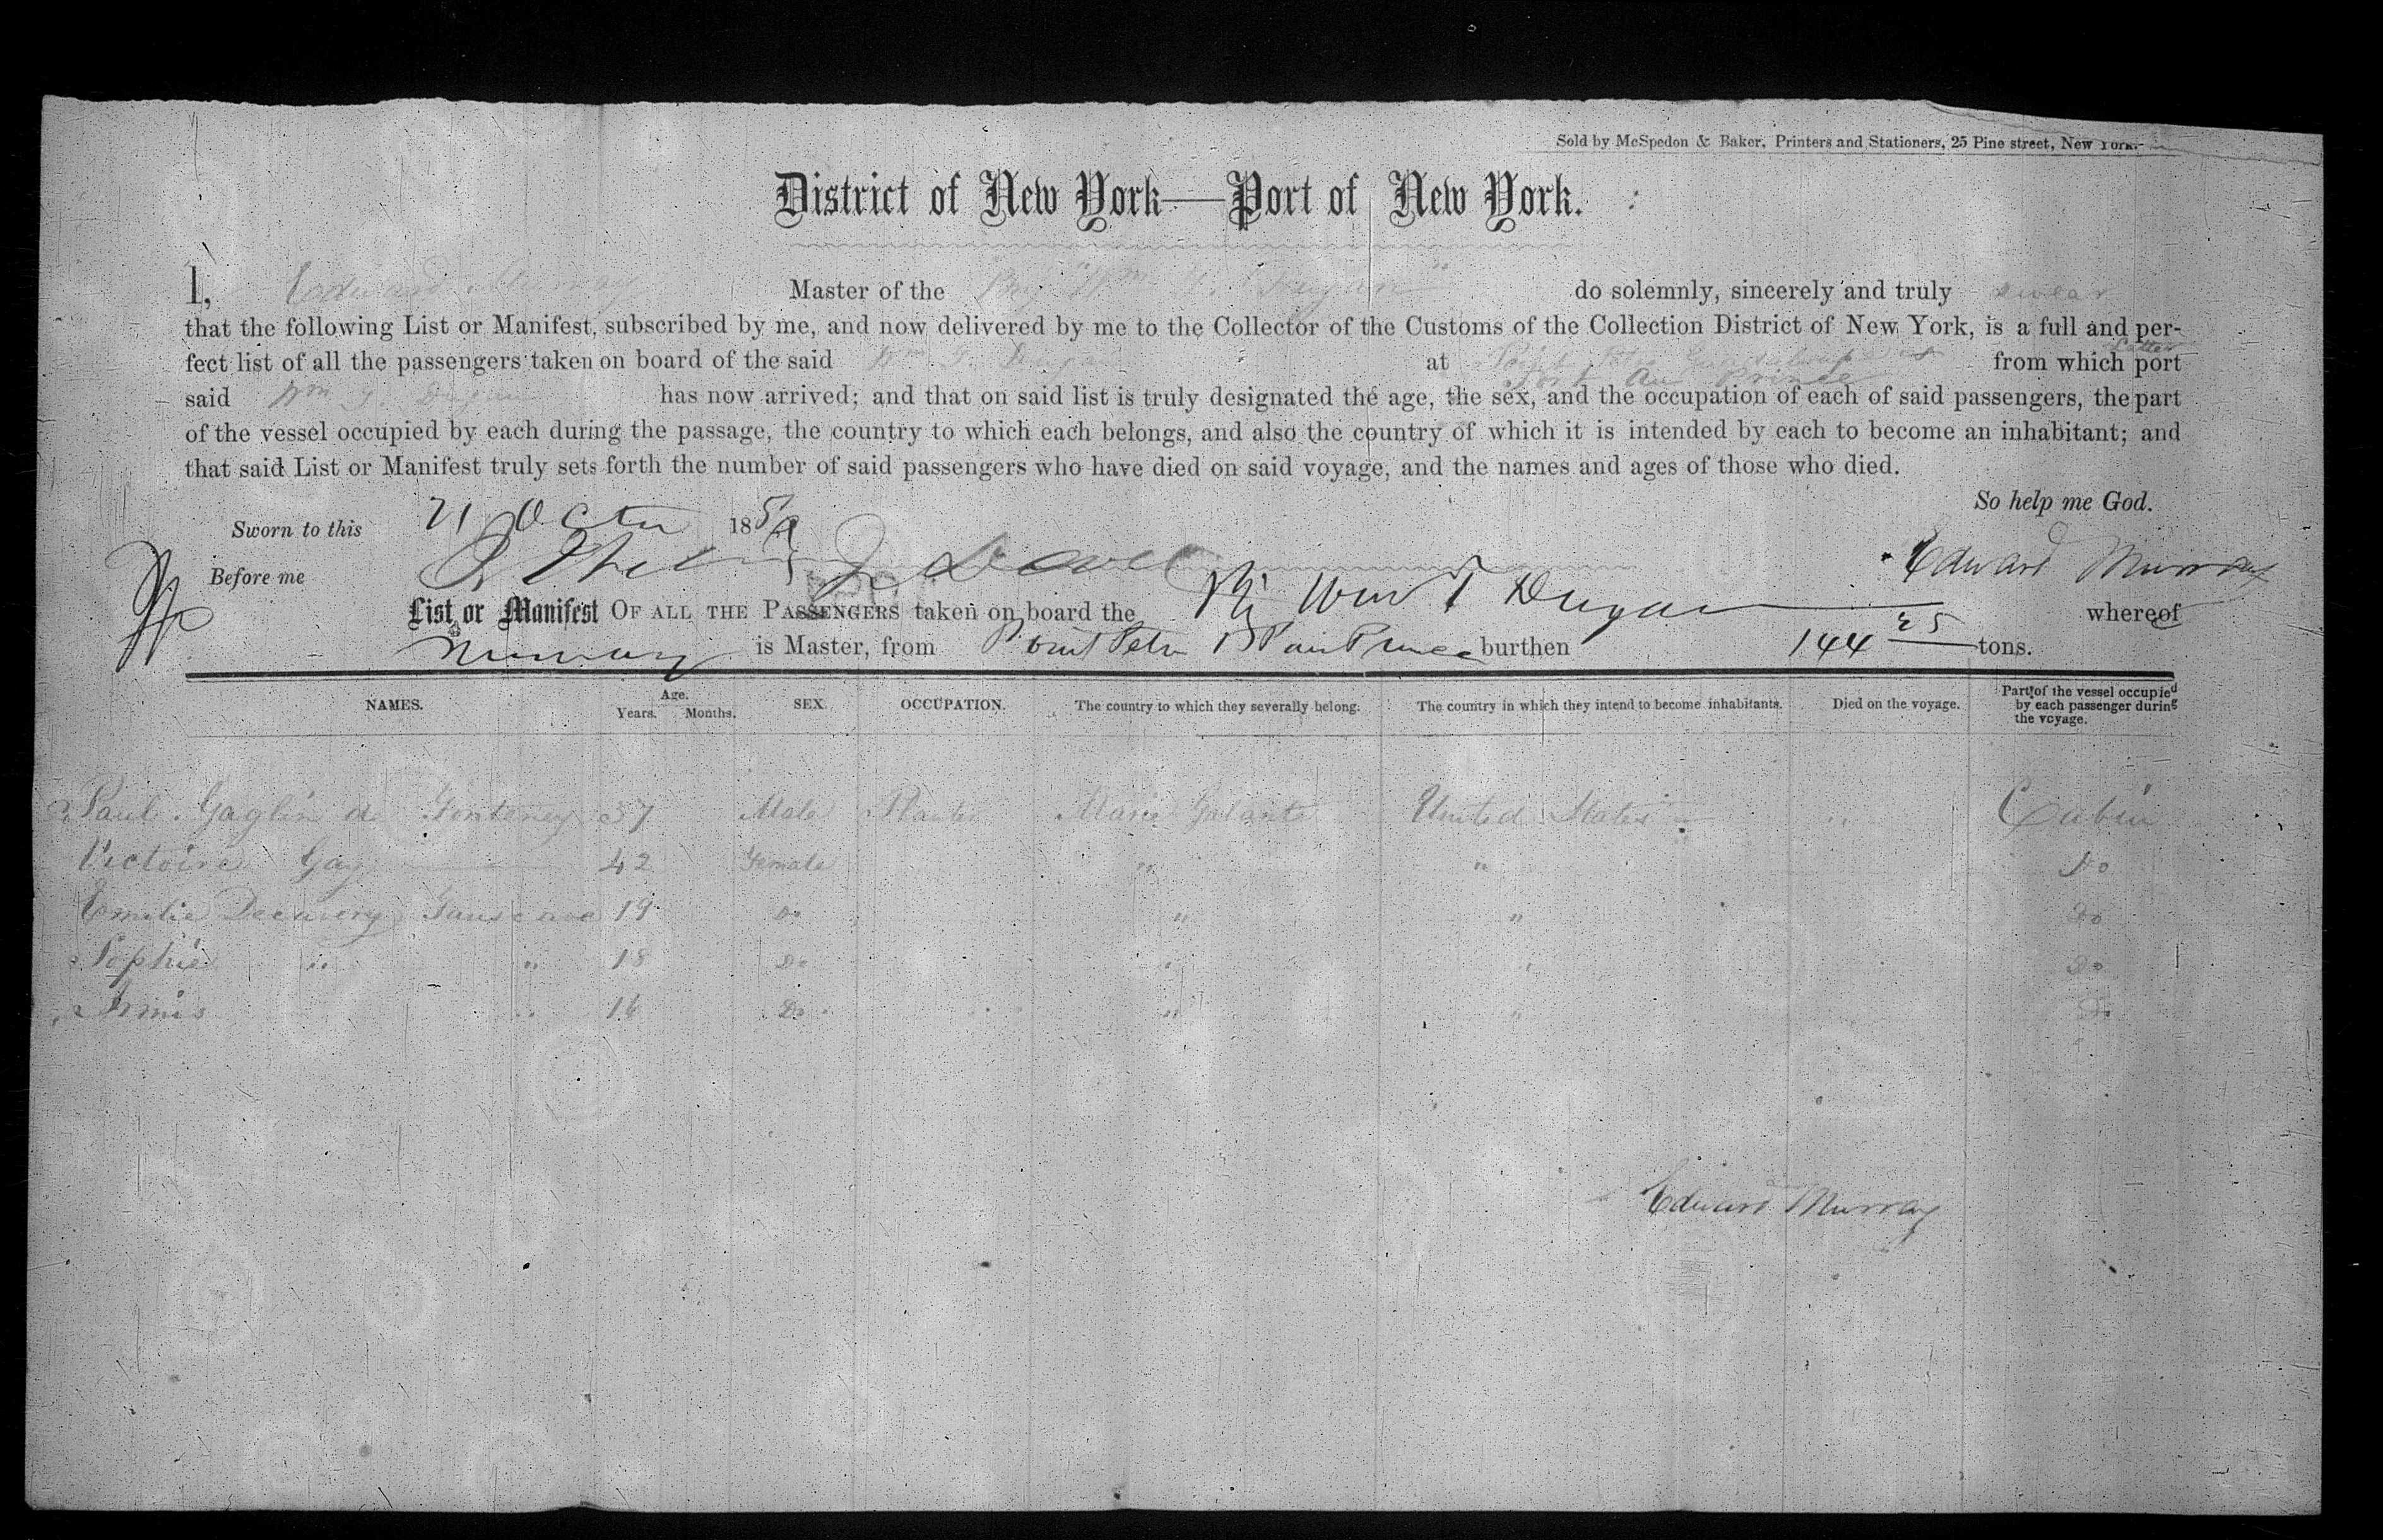 Sold by McSpedon & Baker, Printers and Stationers, 25 Pine street, New York.
District of New York—Port of New York.
I, Edward Murray Master of the Brig "Wm T. Dugan" do solemnly, sincerely and truly swear
that the following List or Manifest, subscribed by me, and now delivered by me to the Collector of the Customs of the Collection District of New York, is a full and per-
fect list of all the passengers taken on board of the said Wm T. Dugan at Port Au Prince from which latter port
said Wm T. Dugan has now arrived; and that on said list is truly designated the age, the sex, and the occupation of each of said passengers, the part
of the vessel occupied by each during the passage, the country to which each belongs, and also the country of which it is intended by each to become an inhabitant; and
that said List or Manifest truly sets forth the number of said passengers who have died on said voyage, and the names and ages of those who died.
So help me God.
Sworn to this 21 Octr 185
Before me Edward Murray
List or Manifest OF ALL THE PASSENGERS taken on board the Bg Wm T Dugan whereof
Murray is Master, from Point Petre & Port au Prince burthen 144 25 tons.
NAMES. Age. Years. Months. SEX. OCCUPATION. The country to which they severally belong. The country in which they intend to become inhabitants. Died on the voyage. Part of the vessel occupied by each passenger during the voyage.
Paul Gaglin de Fonteney 37 Male Planter Marie Galante United States Cabin
Victoire Gay 42 Female " " Do
Emilie 19 Do " " Do
Sophie " " 18 Do " " Do
" 16 Do " " Do
Edward Murray